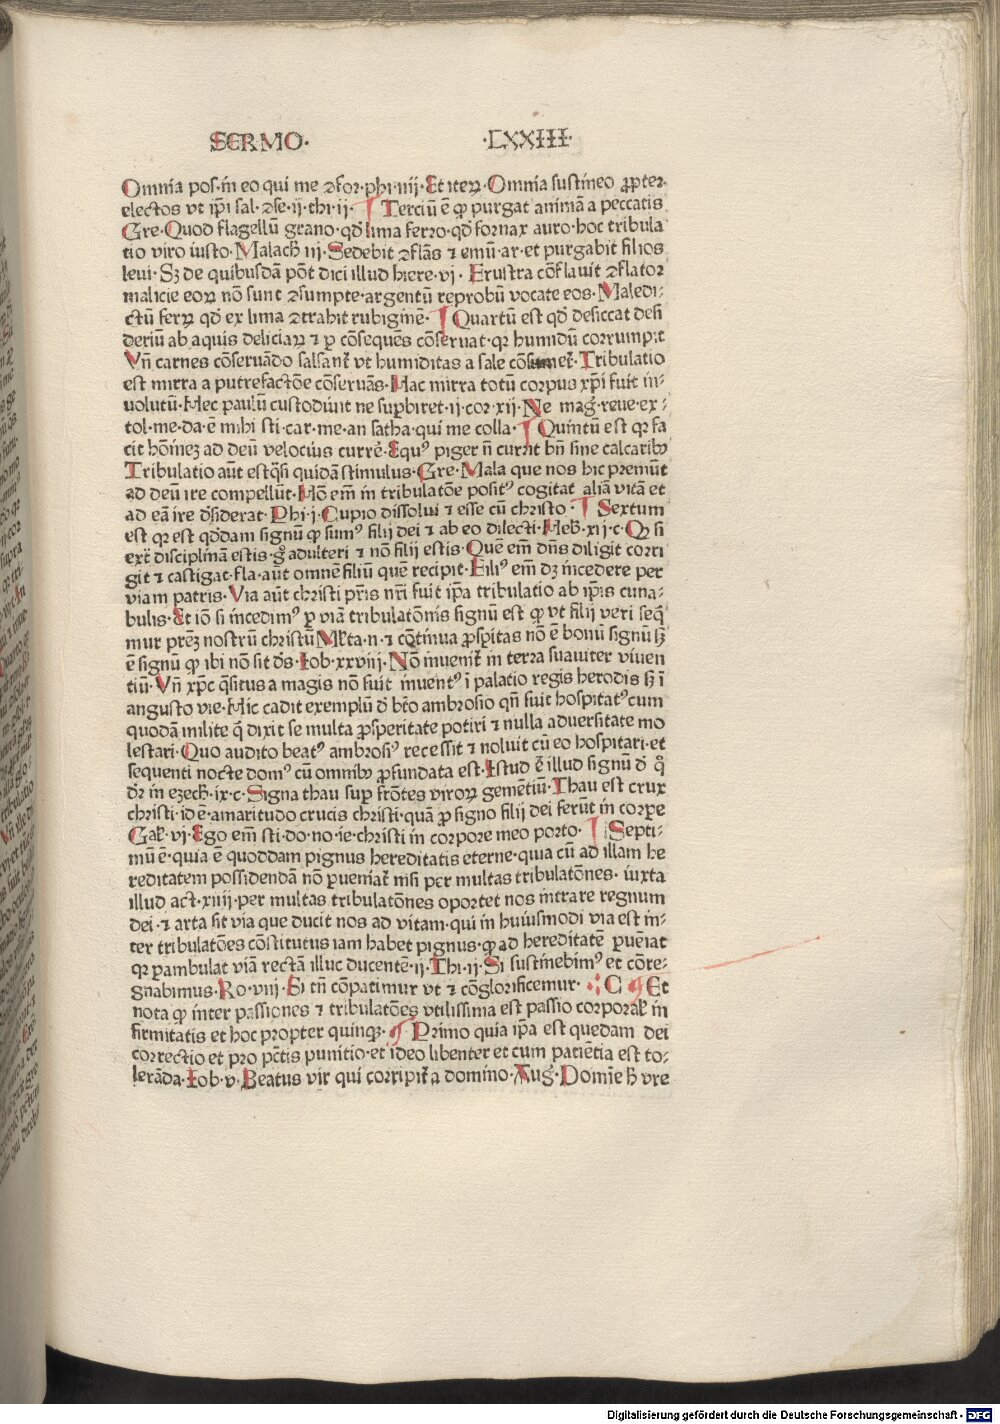 SERMO· ·LXXIII·
Omnia pos·in eo qui me ꝯfor·phi·iiij·Et iteꝝ·Omnia sustineo ꝓpter·
electos vt ip̄i sal·ꝯse·ij·thi·ij· ¶ Terciū ē ꝙ purgat animā a peccatis
Gre·Quod flagellū grano·qd̓ lima ferro·qd̓ fornax auro·hoc tribula
tio viro iusto·Malach̄ iij·Sedebit ꝯflās ⁊ emū·ar·et purgabit filios
leui·Sꝫ de quibusdā pōt dici illud hiere·vj· Frustra cōflauit ꝯflator
malicie eoꝝ nō sunt ꝯsumpte·argentū reprobū vocate eos·Maledi-
ctū ferꝝ qd̓ ex lima ꝯtrahit rubiginē· ¶ Quartū est qd̓ desiccat desi
deriū ab aquis deliciaꝝ ⁊ ꝑ cōseques cōseruat·qꝛ humidū corrumpit
Vn̄ carnes cōseruādo salsant᷑ vt humiditas a sale cōsumet᷑·Tribulatio
est mirra a putrefactōe cōseruās·Hac mirra totū corpus xp̄i fuit in-
uolutū·Hec paulū custodiūt ne supbiret·ij·cor·xij·Ne mag̓·reue·ex-
tol·me·da·ē mihi sti·car·me·an satha·qui me colla· ¶ Quintū est qꝛ fa
cit hōinez ad deū velocius curre᷑·Equꝰ piger n̄ currit bn̄ sine calcaribꝫ
Tribulatio aūt estq̄si quidā stimulus·Gre·Mala que nos hic premūt
ad deū ire compellūt·Hō em̄ in tribulatōe positꝰ cogitat aliā vitā et
ad eā ire d̓siderat·Phi·j·Cupio dissolui ⁊ esse cū christo· ¶ Sextum
est qꝛ est qd̓dam signū ꝙ sumꝰ filij dei ⁊ ab eo dilecti·Heb̄·xij·c·Qꝛ si
ext᷑ disciplinā estis·g̓ adulteri ⁊ nō filij estis·Quē em̄ dn̄s diligit corri
git ⁊ castigat·fla·aūt omnē filiū quē recipit·Filiꝰ em̄ dꝫ incedere per
viam patris·Via aūt christi pr̄is nr̄i fuit ip̄a tribulatio ab ip̄is cuna-
bulis·Et iō si incedimꝰ ꝑ viā tribulatōnis signū est ꝙ vt filij veri seq̄
mur prēz nostrū christū Ml̓ta·n·⁊ cōtinua ꝓspitas nō ē bonū signū sꝫ
ē signū ꝙ ibi nō sit d̄s·Iob·xxviij·Nō inuenit᷑ in terra suauiter viuen
tiū·Vn̄ xp̄c q̄situs a magis nō fuit inuentꝰ ī palatio regis herodis sꝫ ī
angusto vie·Hic cadit exemplū d̓ bt̄o ambrosio qn̄ fuit hospitatꝰ cum
quodā milite q̓ dixit se multa ꝓsperitate potiri ⁊ nulla aduersitate mo
lestari·Quo audito beatꝰ ambrosiꝰ recessit ⁊ noluit cū eo hospitari·et
sequenti nocte domꝰ cū omnibꝫ ꝓfundata est·Istud ē illud signū d̓ q̊
dr̄ in ezech̄·ix·c·Signa thau sup̄ frōtes viroꝝ gementiū·Thau est crux
christi·id ē·amaritudo crucis christi·quā ꝓ signo filij dei ferūt in corꝑe
Gal̓·vj·Ego em̄ sti·do·no·ie·christi in corpore meo porto· ¶ Septi-
mū ē·quia ē quoddam pignus hereditatis eterne·quia cū ad illam he
reditatem possidendā nō ꝑueniat᷑ nisi per multas tribulatōnes·iuxta
illud act·xiiij·per multas tribulatōnes oportet nos intrare regnum
dei·⁊ arta sit via que ducit nos ad vitam·qui in huiusmodi via est in-
ter tribulatōes cōstitutus iam habet pignus·ꝙ ad hereditatē ꝑueniat
qꝛ ꝑambulat viā rectā illuc ducentē·ij·Thi·ij·Si sustinebimꝰ et cōre-
gnabimus·Ro·viij·Si tn̄ cōpatimur vt ⁊ cōglorificemur· C ¶ Et
nota ꝙ inter passiones ⁊ tribulatōes vtilissima est passio corporal̓ in
firmitatis et hoc propter quinqꝫ· ¶ Primo quia ip̄a est quedam dei
correctio et pro pc̄tis punitio·et ideo libenter et cum patiētia est to-
lerāda·Iob·v·Beatus vir qui corripit᷑ a domino·Aug̓·Domīe h̄ vre
Digitalisierung gefördert durch die Deutsche Forschungsgemeinschaft - DFG